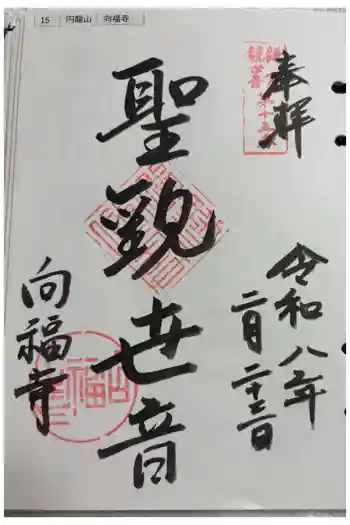 15 円龍山 向福寺
奉拝
令和八年
二月二十三日
聖観世音
向福寺